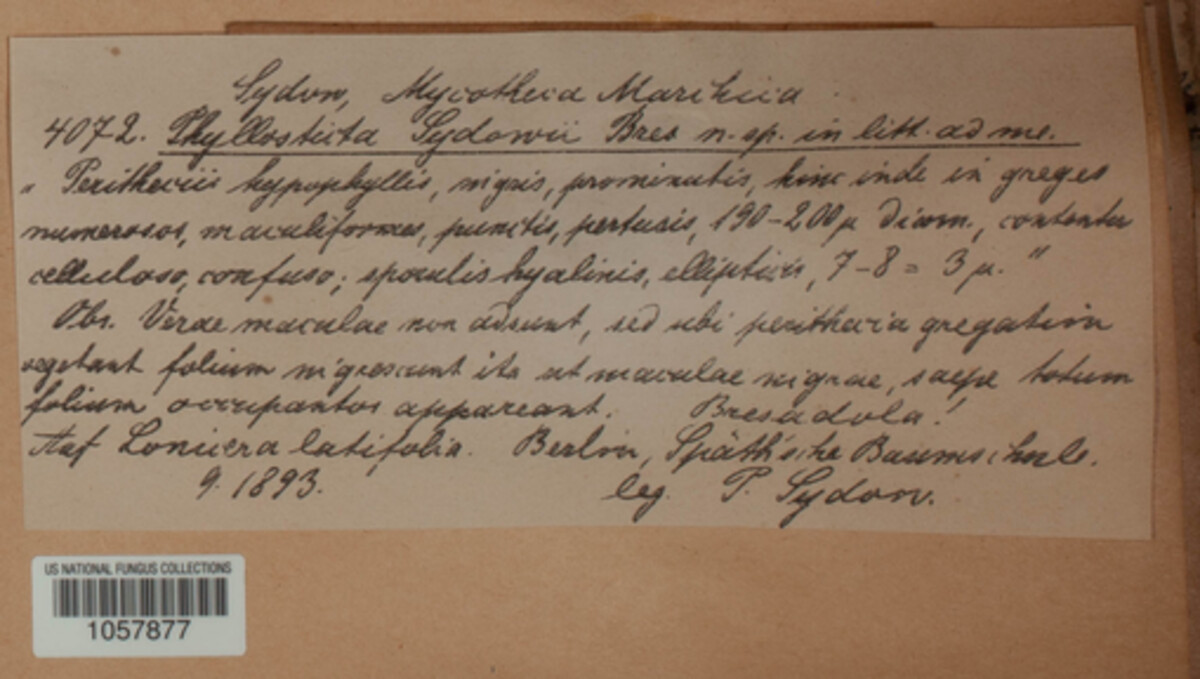 Sydow, Mycotheca Marchica
4072. Phyllosticta Sydowii Bres n. sp. in litt. ad me.
„ Peritheciis hypophyllis, nigris, prominulis, hinc inde in greges
numerosos, maculiformes, punctis, pertusis, 190–200 µ diam., contextu
celluloso, confuso; sporulis hyalinis, ellipticis, 7–8 = 3 µ. "
Obs. Verae maculae non adsunt, sed ubi perithecia gregatim
vegetant folium nigrescunt ita ut maculae nigrae, saepe totum
folium occupantes appareant. Bresadola!
Auf Lonicera latifolia. Berlin, Späth'sche Baumschule.
9. 1893. leg. P. Sydow.
US NATIONAL FUNGUS COLLECTIONS
1057877